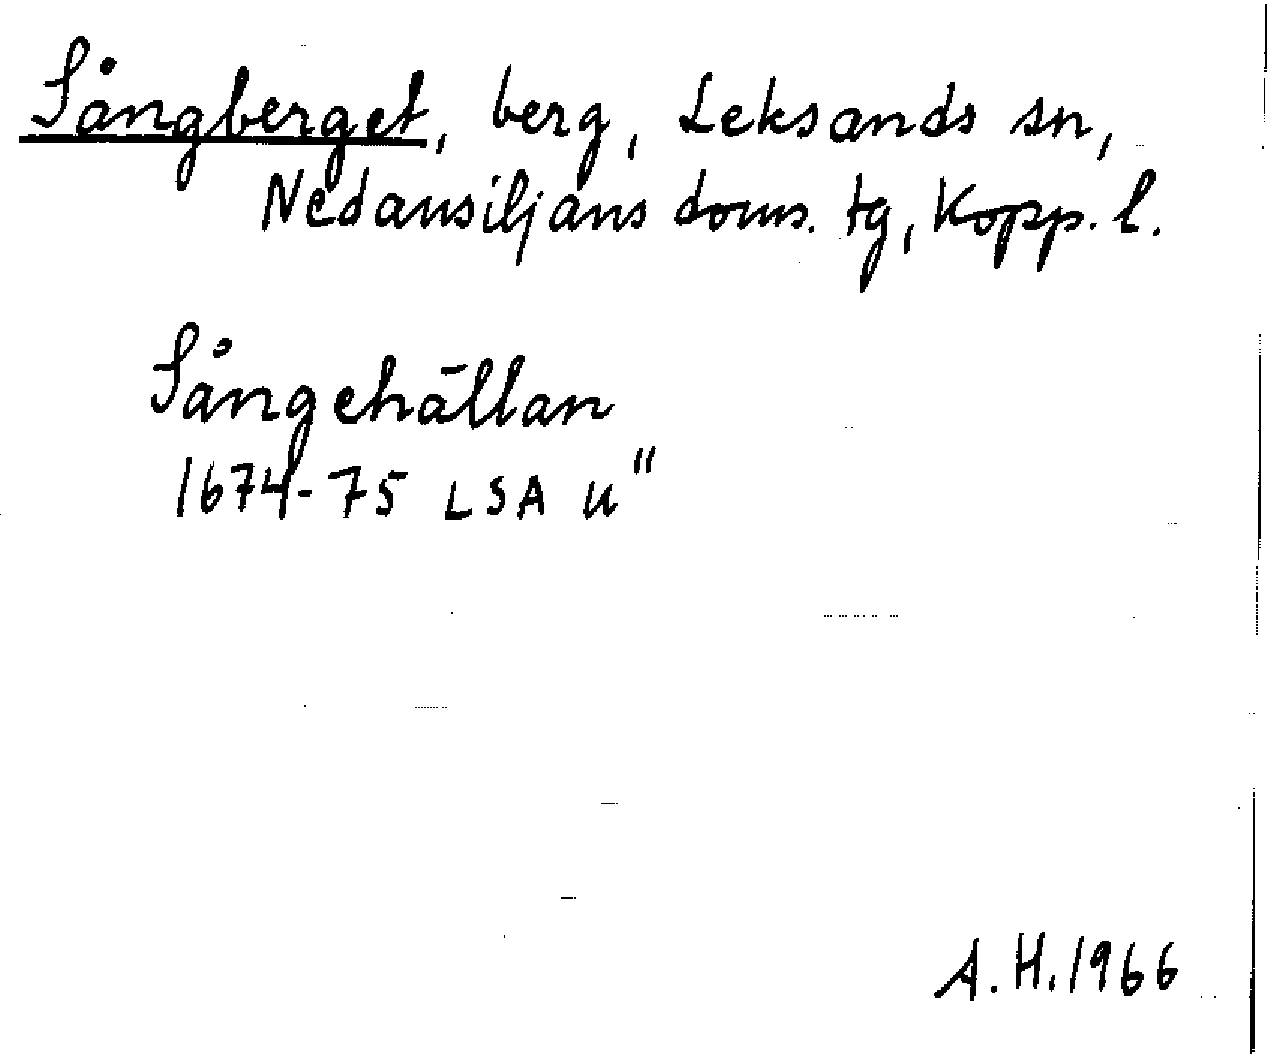 Sångberget, berg, Leksands sn,
Nedansiljans doms. tg, Kopp. l.
Sångehällan
1674-75 LSA u"
A.H. 1966